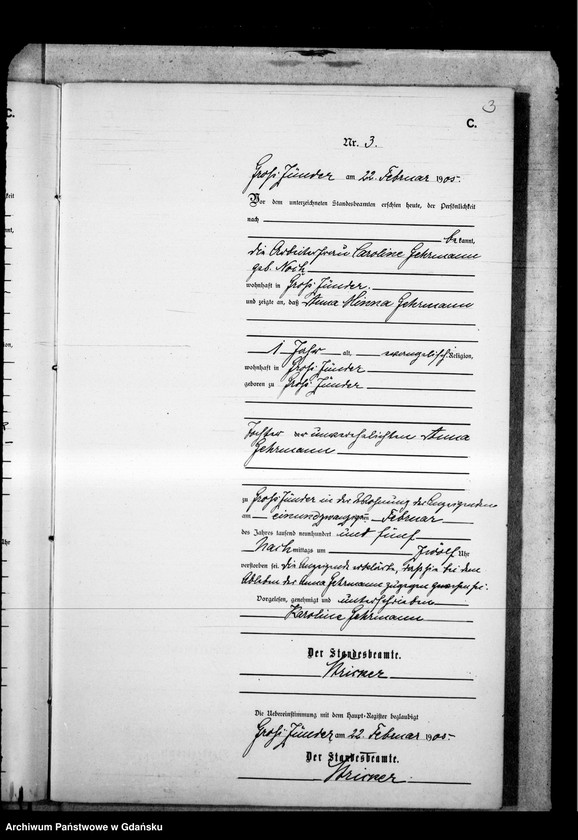 3
C.
Nr. 3.
Groß Zünder am 22. Februar 1905.
Vor dem unterzeichneten Standesbeamten erschien heute, der Persönlichkeit
nach
bekannt,
die Arbeiterfrau Caroline Gehrmann
geb.
wohnhaft in Groß Zünder.
und zeigte an, daß Anna Minna Gehrmann
1 Jahr alt, evangelischer Religion,
wohnhaft in Groß Zünder
geboren zu Groß Zünder
Tochter der unverehelichten Anna
Gehrmann
zu Groß Zünder in der Wohnung der Anzeigenden
am einundzwanzigsten Februar
des Jahres tausend neunhundert und fünf
Nachmittags um zwölf Uhr
verstorben sei. Die Anzeigende erklärte, daß sie bei dem
Ableben der Anna Gehrmann zugegen gewesen sei.
Vorgelesen, genehmigt und unterschrieben
Karoline Gehrmann
Der Standesbeamte.
Die Uebereinstimmung mit dem Haupt-Register beglaubigt
Groß Zünder am 22. Februar 1905.
Der Standesbeamte.
Archiwum Państwowe w Gdańsku